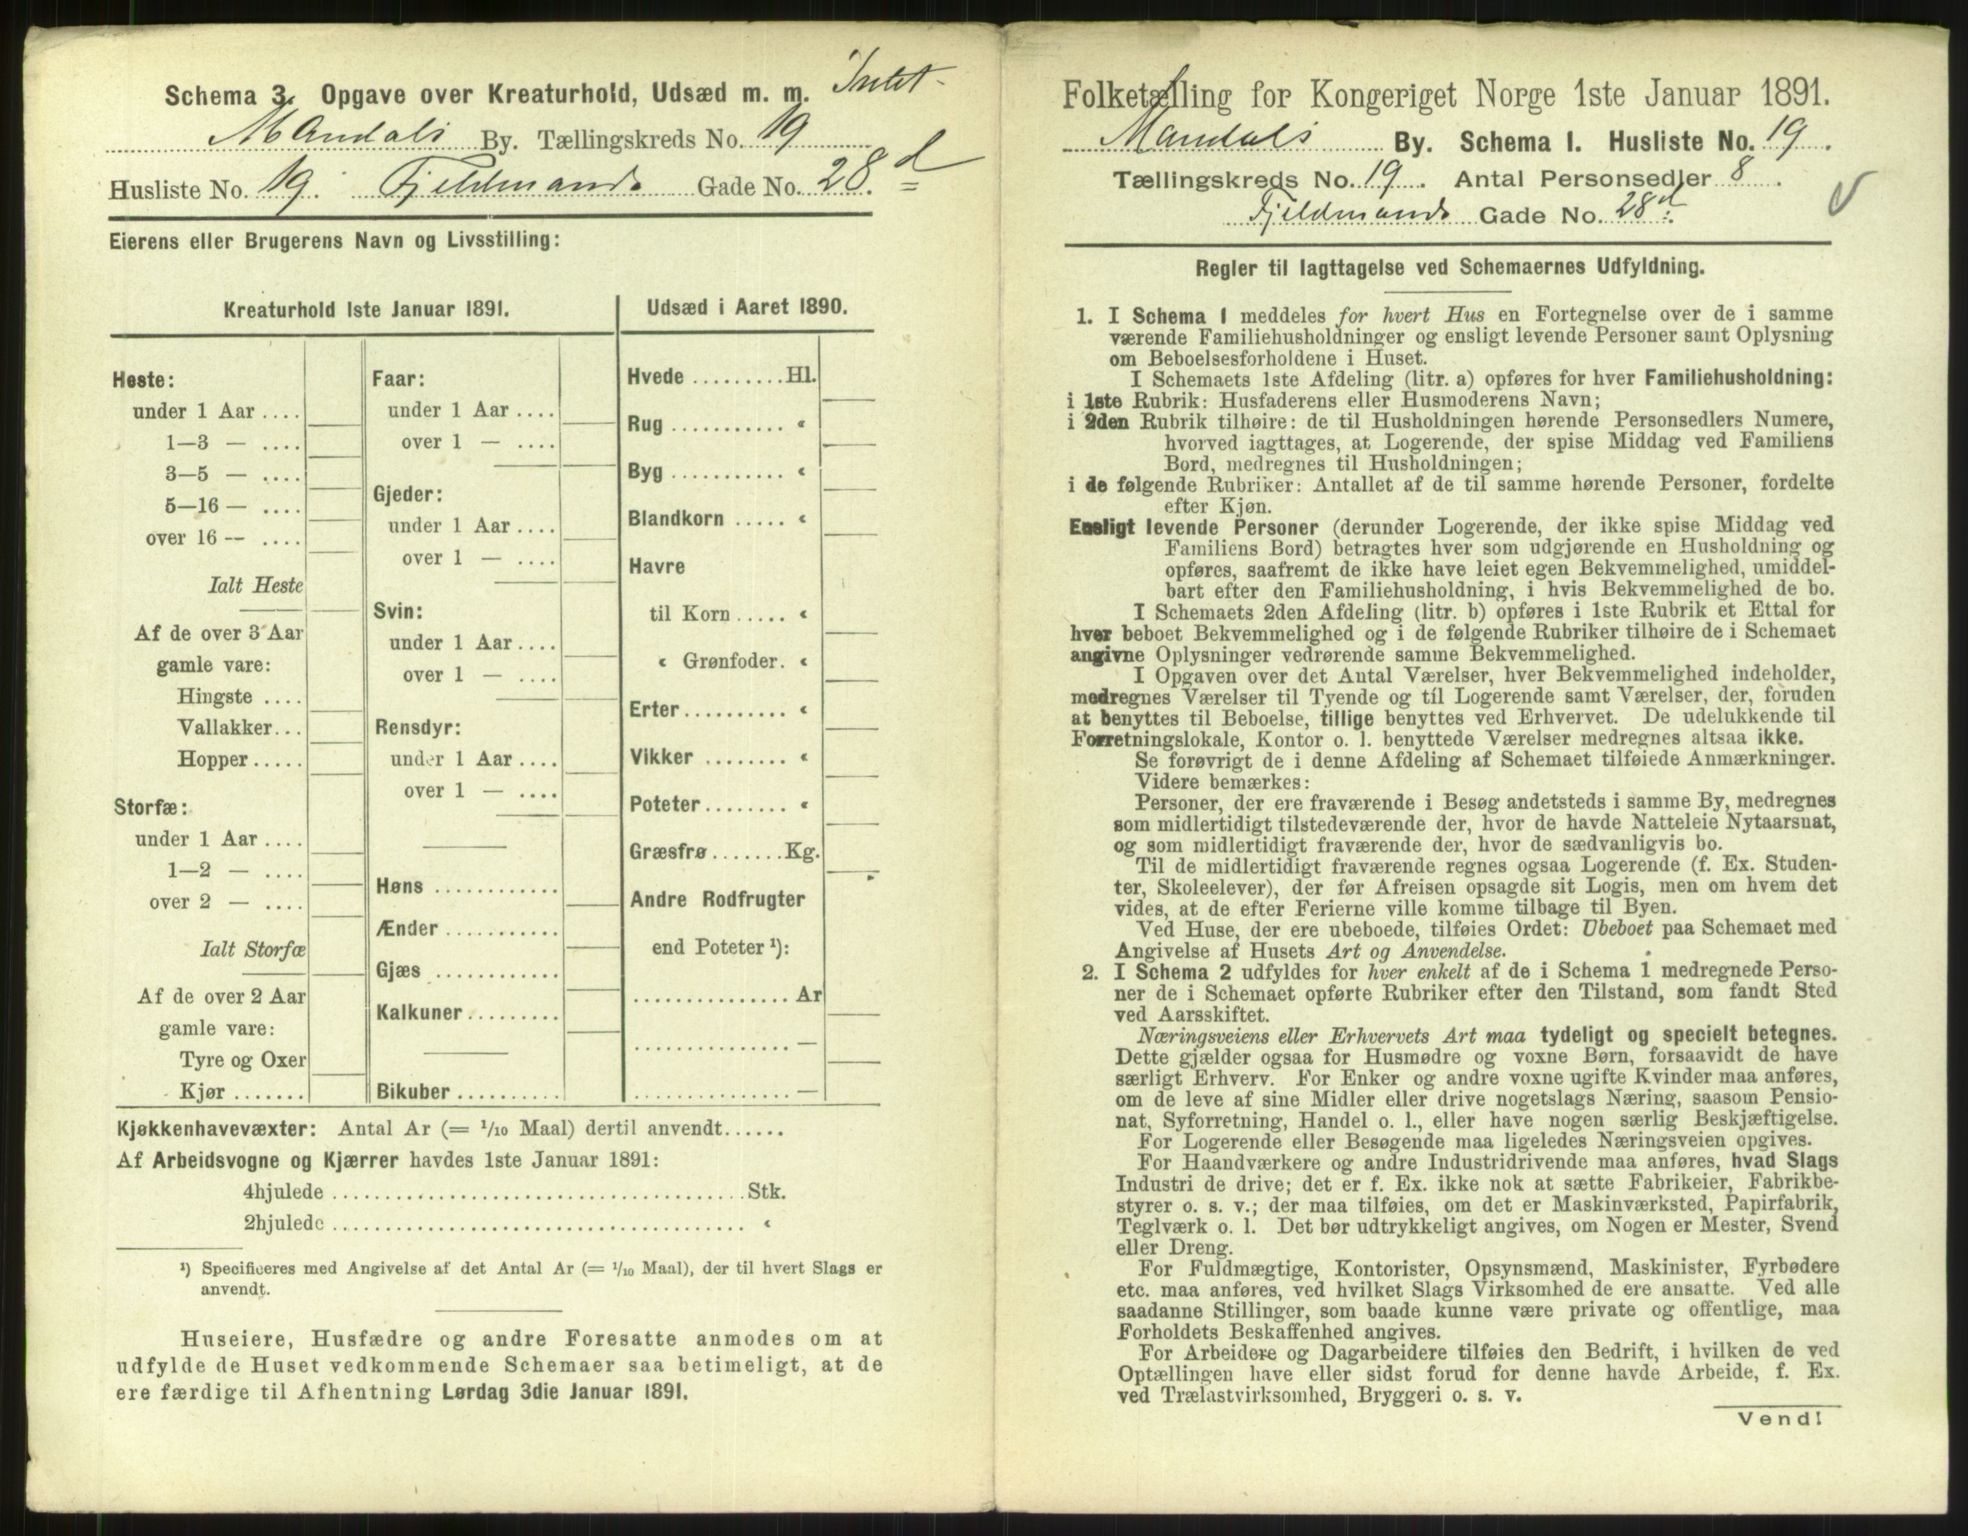 Schema 3. Opgave over Kreaturhold, Udsæd m. m. Intet
Mandals By. Tællingskreds No. 19
Husliste No. 19. Fjeldmands Gade No. 28.d
Eierens eller Brugerens Navn og Livsstilling:
Kreaturhold 1ste Januar 1891.
Heste:
under 1 Aar ....
1—3 — ....
3—5 — ....
5—16 — ....
over 16 — ....
Ialt Heste
Af de over 3 Aar
gamle vare:
Hingste ....
Vallakker...
Hopper.....
Storfæ:
under 1 Aar ....
1—2 — ....
over 2 — ....
Ialt Storfæ
Af de over 2 Aar
gamle vare:
Tyre og Oxer
Kjør .......
Faar:
under 1 Aar ....
over 1 — ....
Gjeder:
under 1 Aar ....
over 1 — ....
Svin:
under 1 Aar ....
over 1 — ....
Rensdyr:
under 1 Aar ....
over 1 — ....
Høns ............
Ænder ...........
Gjæs ............
Kalkuner.........
Bikuber ..........
Udsæd i Aaret 1890.
Hvede .........Hl.
Rug ........... «
Byg ........... «
Blandkorn ..... «
Havre
til Korn ..... «
« Grønfoder. «
Erter.......... «
Vikker ........ «
Poteter........ «
Græsfrø .......Kg.
Andre Rodfrugter
end Poteter ¹):
............... Ar
............... —
............... —
Kjøkkenhavevæxter: Antal Ar (= 1/10 Maal) dertil anvendt......
Af Arbeidsvogne og Kjærrer havdes 1ste Januar 1891:
4hjulede .....................................Stk.
2hjulede ..................................... «
¹) Specificeres med Angivelse af det Antal Ar (= 1/10 Maal), der til hvert Slags er
anvendt.
Huseiere, Husfædre og andre Foresatte anmodes om at
udfylde de Huset vedkommende Schemaer saa betimeligt, at de
ere færdige til Afhentning Lørdag 3die Januar 1891.
Folketælling for Kongeriget Norge 1ste Januar 1891.
Mandals By. Schema 1. Husliste No. 19.
Tællingskreds No. 19. Antal Personsedler 8.
Fjeldmands Gade No. 28d.
Regler til Iagttagelse ved Schemaernes Udfyldning.
1. I Schema 1 meddeles for hvert Hus en Fortegnelse over de i samme
værende Familiehusholdninger og ensligt levende Personer samt Oplysning
om Beboelsesforholdene i Huset.
I Schemaets 1ste Afdeling (litr. a) opføres for hver Familiehusholdning:
i 1ste Rubrik: Husfaderens eller Husmoderens Navn;
i 2den Rubrik tilhøire: de til Husholdningen hørende Personsedlers Numere,
hvorved iagttages, at Logerende, der spise Middag ved Familiens
Bord, medregnes til Husholdningen;
i de følgende Rubriker: Antallet af de til samme hørende Personer, fordelte
efter Kjøn.
Ensligt levende Personer (derunder Logerende, der ikke spise Middag ved
Familiens Bord) betragtes hver som udgjørende en Husholdning og
opføres, saafremt de ikke have leiet egen Bekvemmelighed, umiddel-
bart efter den Familiehusholdning, i hvis Bekvemmelighed de bo.
I Schemaets 2den Afdeling (litr. b) opføres i 1ste Rubrik et Ettal for
hver beboet Bekvemmelighed og i de følgende Rubriker tilhøire de i Schemaet
angivne Oplysninger vedrørende samme Bekvemmelighed.
I Opgaven over det Antal Værelser, hver Bekvemmelighed indeholder,
medregnes Værelser til Tyende og til Logerende samt Værelser, der, foruden
at benyttes til Beboelse, tillige benyttes ved Erhvervet. De udelukkende til
Forretningslokale, Kontor o. l. benyttede Værelser medregnes altsaa ikke.
Se forøvrigt de i denne Afdeling af Schemaet tilføiede Anmærkninger.
Videre bemærkes:
Personer, der ere fraværende i Besøg andetsteds i samme By, medregnes
som midlertidigt tilstedeværende der, hvor de havde Natteleie Nytaarsnat,
og som midlertidigt fraværende der, hvor de sædvanligvis bo.
Til de midlertidigt fraværende regnes ogsaa Logerende (f. Ex. Studen-
ter, Skoleelever), der før Afreisen opsagde sit Logis, men om hvem det
vides, at de efter Ferierne ville komme tilbage til Byen.
Ved Huse, der ere ubeboede, tilføies Ordet: Ubeboet paa Schemaet med
Angivelse af Husets Art og Anvendelse.
2. I Schema 2 udfyldes for hver enkelt af de i Schema 1 medregnede Perso-
ner de i Schemaet opførte Rubriker efter den Tilstand, som fandt Sted
ved Aarsskiftet.
Næringsveiens eller Erhvervets Art maa tydeligt og specielt betegnes.
Dette gjælder ogsaa for Husmødre og voxne Børn, forsaavidt de have
særligt Erhverv. For Enker og andre voxne ugifte Kvinder maa anføres,
om de leve af sine Midler eller drive nogetslags Næring, saasom Pensio-
nat, Syforretning, Handel o. l., eller have nogen særlig Beskjæftigelse.
For Logerende eller Besøgende maa ligeledes Næringsveien opgives.
For Haandværkere og andre Industridrivende maa anføres, hvad Slags
Industri de drive; det er f. Ex. ikke nok at sætte Fabrikeier, Fabrikbe-
styrer o. s. v.; der maa tilføies, om det er Maskinværksted, Papirfabrik,
Teglværk o. l. Det bør udtrykkeligt angives, om Nogen er Mester, Svend
eller Dreng.
For Fuldmægtige, Kontorister, Opsynsmænd, Maskinister, Fyrbødere
etc. maa anføres, ved hvilket Slags Virksomhed de ere ansatte. Ved alle
saadanne Stillinger, som baade kunne være private og offentlige, maa
Forholdets Beskaffenhed angives.
For Arbeidere og Dagarbeidere tilføies den Bedrift, i hvilken de ved
Optællingen have eller sidst forud for denne havde Arbeide, f. Ex.
ved Trælastvirksomhed, Bryggeri o. s. v.
Vend!